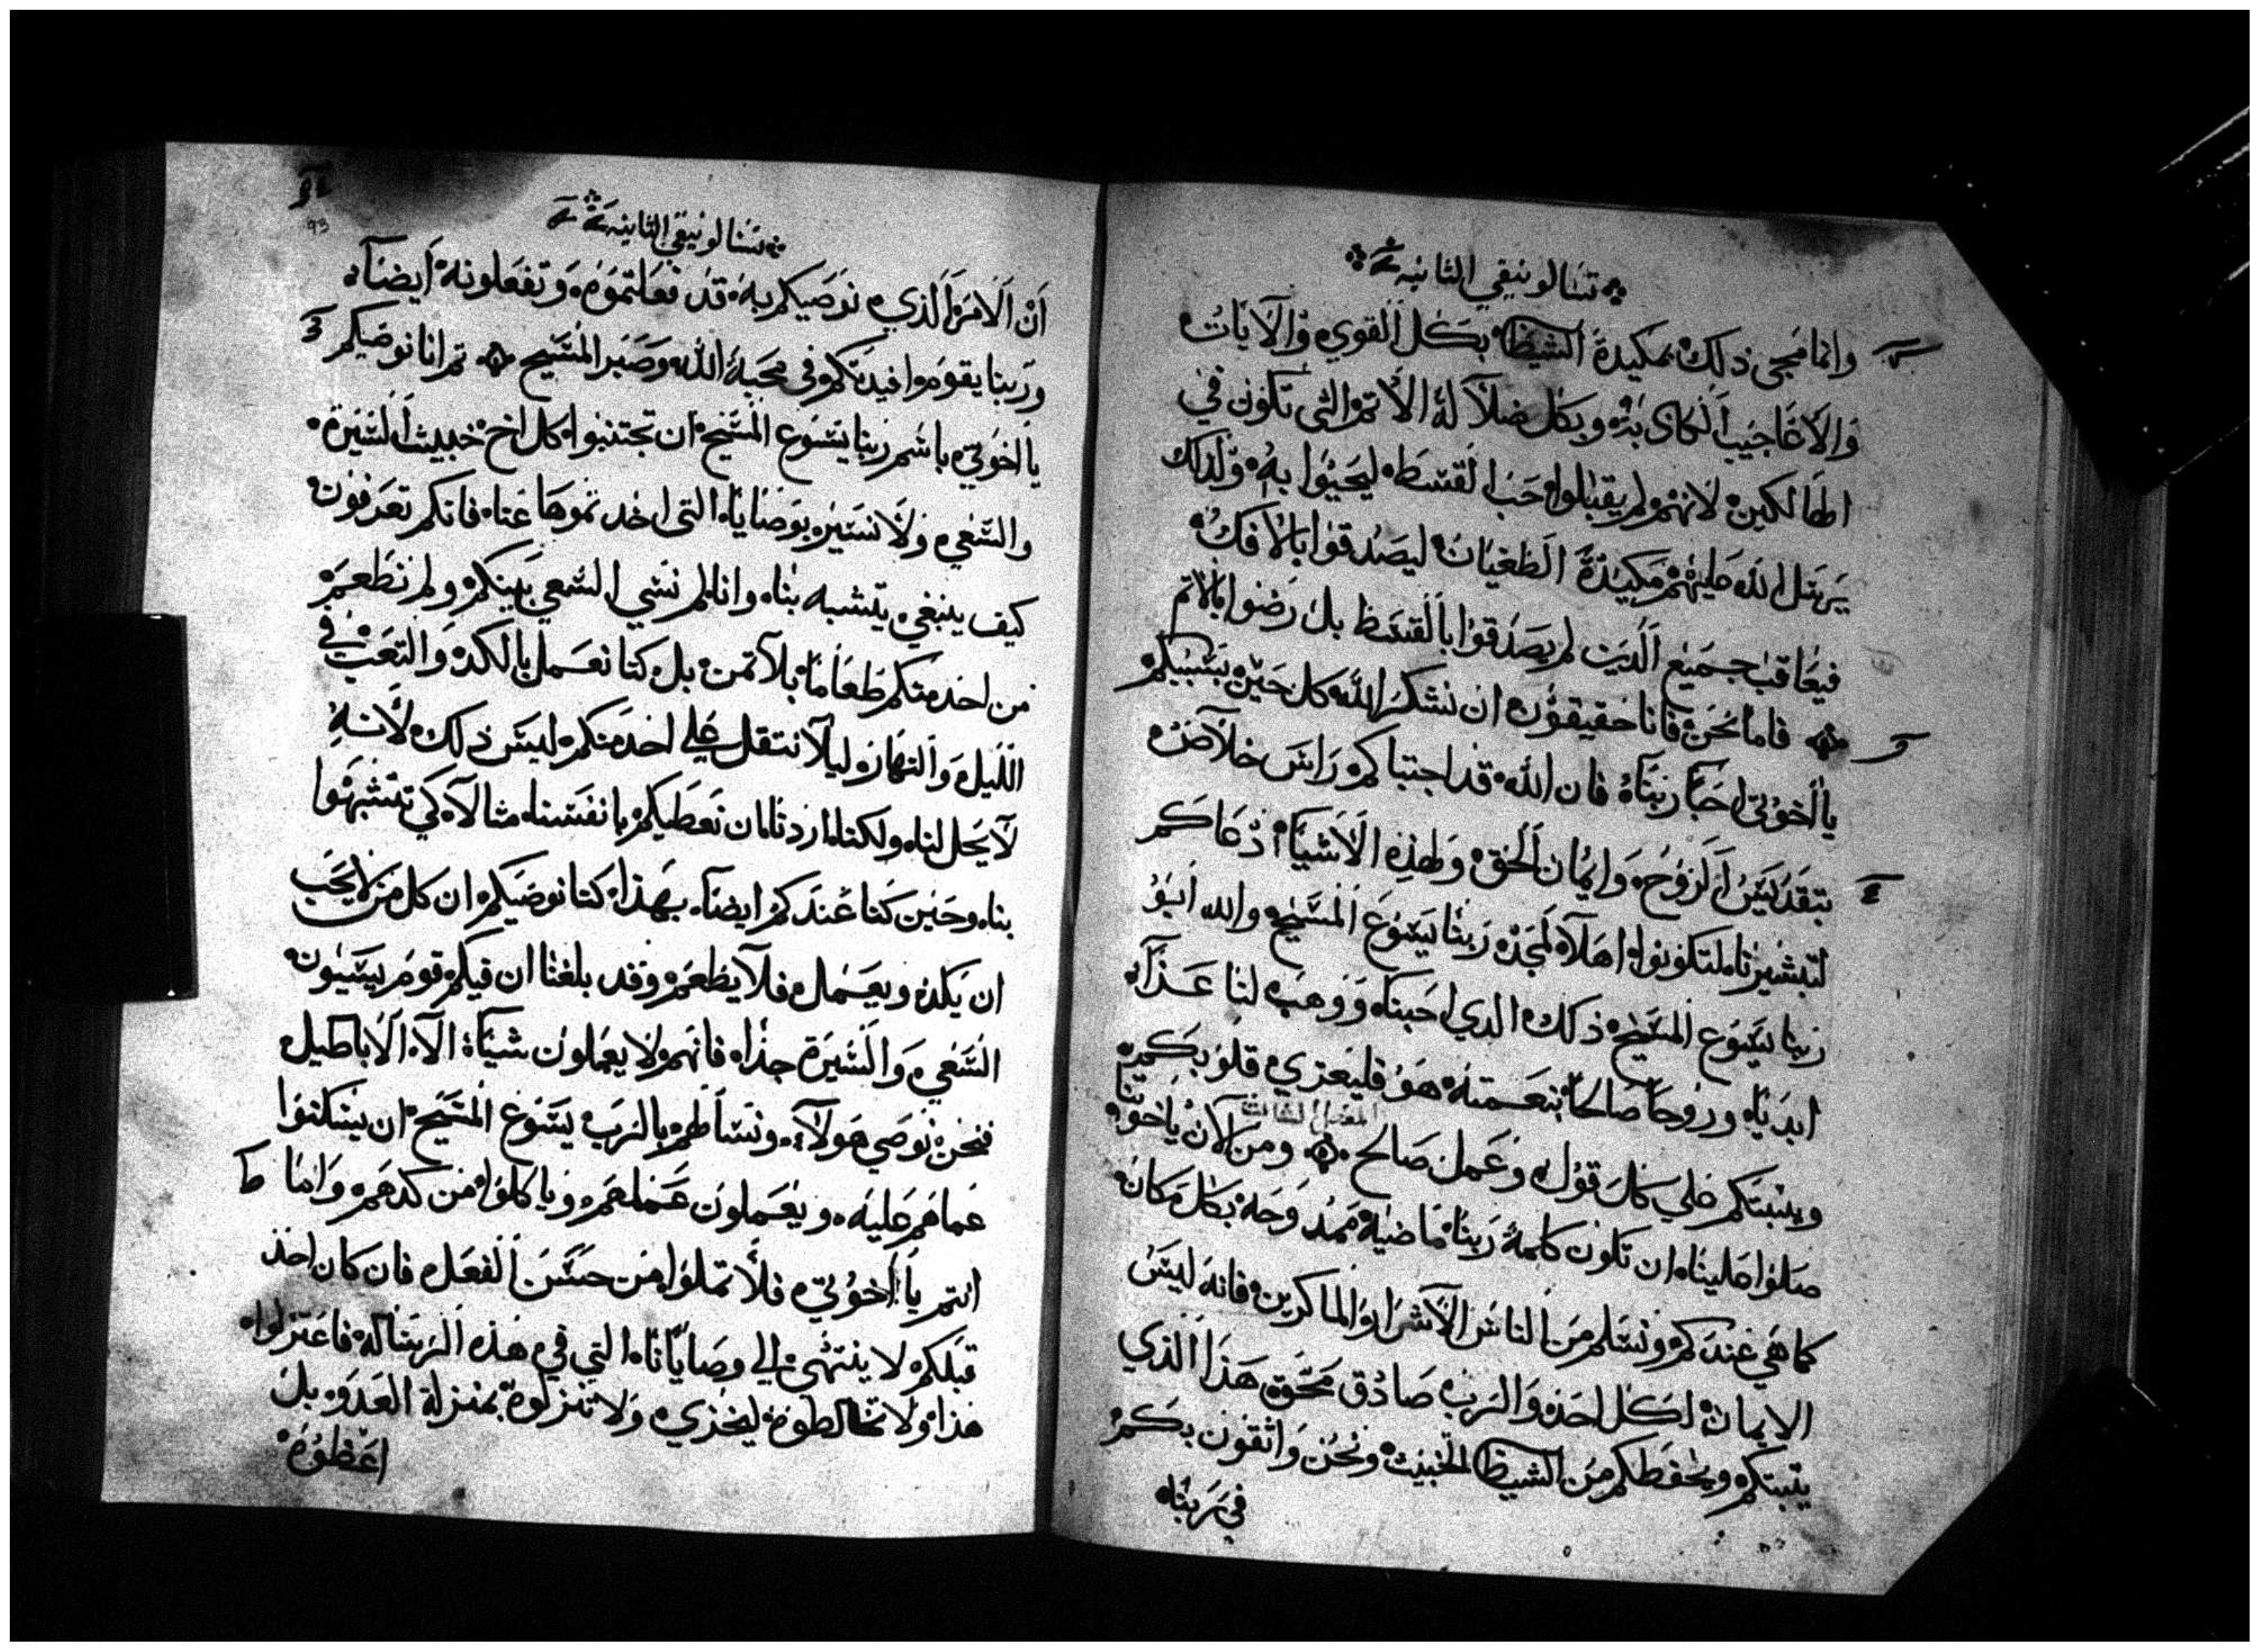 تسالونيقي الثانيه
وانما مجى ذلك بمكيدة الشيطا بكل القوي والايات
والاعاجيب الكاذبه وبكل ضلاله الاثم التي تكون في
الهالكين لانهم لم يقبلوا حب القسط ليحيوا به ولذلك
يرسل الله عليهم مكيدة الطغيان ليصدقوا بالافك
فيعاقب جميع الذين لم يصدقوا بالقسط بل رضوا بالاثم
فاما نحن فانا حقيقون ان نشكر الله كل حين بسببكم
يا اخوتي احبا ربنا فان الله قد اجتباكم راس خلاص
بتقديس الروح وايمان الحق ولهذه الاشيا دعاكم
لتبشيرنا لتكونوا اهلا لمجد ربنا يسوع المسيح والله ابو
ربنا يسوع المسيح ذلك الدي احبنا ووهب لنا عزا
ابديا ورجا صالحا بنعمته هو فليعزي قلوبكم
الفصل الثالث
ويثبتكم على كل قول وعمل صالح ومن الان يا اخوتنا
صلوا علينا ان تكون كلمة ربنا ماضيه ممدوحه بكل مكان
كما هي عندكم ونسلم من الناس الاشرار والماكرين فانه ليس
الايمان لكل احد والرب صادق محق هذا الذي
يثبتكم ويحفظكم من الشيطا الخبيث ونحن واثقون بكم
في ربنا
93
تسالونيقي الثانيه
ان الامر الذي نوصيكم به قد فعلتموه وتفعلونه ايضا
وربنا يقوم افيدتكم في محبة الله وصبر المسيح ثم انا نوصيكم
يا اخوتي باسم ربنا يسوع المسيح ان تجتنبوا كل اخ خبيث السيرة
والسعي ولا نسير بوصايانا التي اخذتموها عنا فانكم تعرفون
كيف ينبغي يتشبه بنا وانا لم نسي السعي بينكم ولم نطعم
من احد منكم طعاما بلا ثمن بل كنا نعمل بالكد والتعب في
الليل والنهار ليلا نتقل على احد منكم ليس ذلك لانه
لا يحل لنا ولكنا اردنا ان نعطيكم بانفسنا مثالا كي تتشبهوا
بنا وحين كنا عندكم ايضا بهذا كنا نوصيكم ان كل من لا يحب
ان يكد ويعمل فلا يطعم وقد بلغنا ان فيكم قوم يسيون
السعي والسيرة جدا فانهم لا يعملون شيا الا الاباطيل
فنحن نوصي هولا ونسالهم بالرب يسوع المسيح ان يسكنوا
عماهم عليه ويعملون عملهم وياكلوا من كدهم واما
انتم يا اخوتي فلا تملوا من حسن الفعل فان كان احد
قبلكم لا ينتهى الى وصايانا التي في هذه الرسالة فاعتزلوا
هذا ولا تخالطوه ليخزي ولا تنزلوه بمنزلة العدو بل
اعظوه